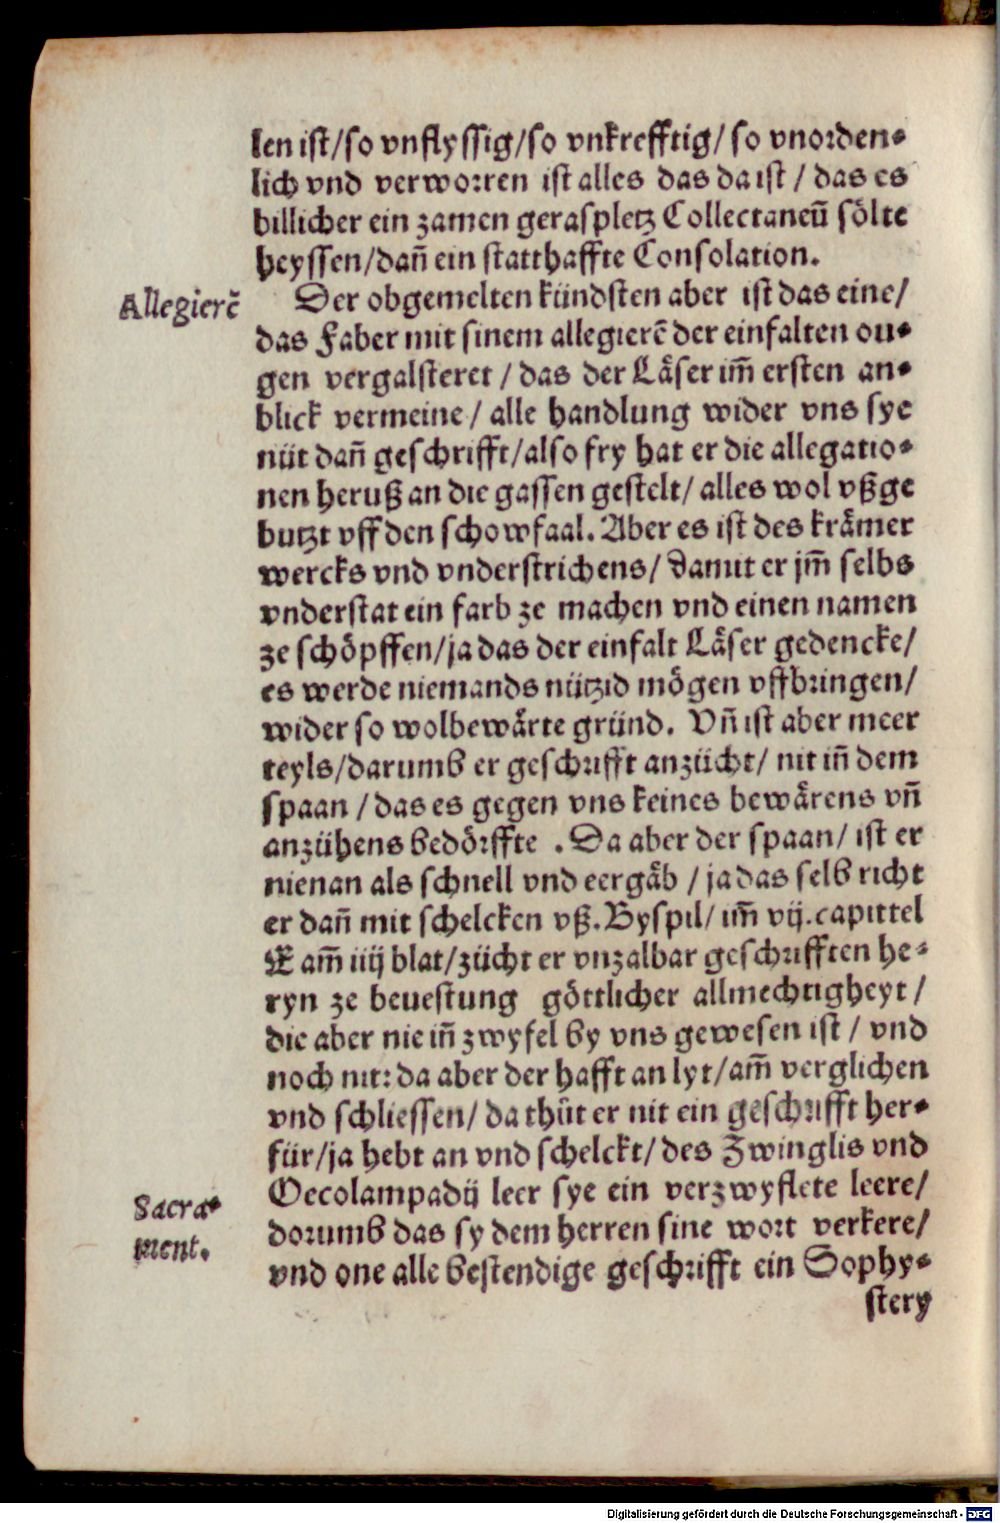 len ist/so vnflyssig/so vnkrefftig/ so vnorden⸗
lich vnd verworren ist alles das da ist / das es
billicher ein zamen geraspletz Collectaneũ sölte
heyssen/dañ ein statthaffte Consolation.
Allegierē
Der obgemelten kündsten aber ist das eine/
das Faber mit sinem allegierē der einfalten ou⸗
gen vergalsteret / das der Läser im̃ ersten an⸗
blick vermeine / alle handlung wider vns sye
nüt dañ geschrifft/also fry hat er die allegatio⸗
nen heruß an die gassen gestelt/ alles wol vßge
butzt vff den schowfaal. Aber es ist des krämer
wercks vnd vnderstrichens/ damit er jm̃ selbs
vnderstat ein farb ze machen vnd einen namen
ze schöpffen/ja das der einfalt Läser gedencke/
es werde niemands nützid mögen vffbringen/
wider so wolbewärte gründ. Vñ ist aber meer
teyls/darumb er geschrifft anzücht/ nit iñ dem
spaan / das es gegen vns keines bewärens vñ
anzühens bedörffte . Da aber der spaan/ ist er
nienan als schnell vnd eergäb / ja das selb richt
er dañ mit schelcken vß. Byspil/ im̃ vij. capittel
E am̃ iiij blat/zücht er vnzalbar geschrifften he⸗
ryn ze beuestung göttlicher allmechtigheyt /
die aber nie iñ zwyfel by vns gewesen ist / vnd
noch nit: da aber der hafft an lyt/am̃ verglichen
vnd schliessen/ da thůt er nit ein geschrifft her⸗
für/ja hebt an vnd schelckt/ des Zwinglis vnd
Sacra⸗
ment.
Oecolampadij leer sye ein verzwyflete leere/
dorumb das sy dem herren sine wort verkere/
vnd one alle bestendige geschrifft ein Sophy⸗
stery
Digitalisierung gefördert durch die Deutsche Forschungsgemeinschaft - DFG